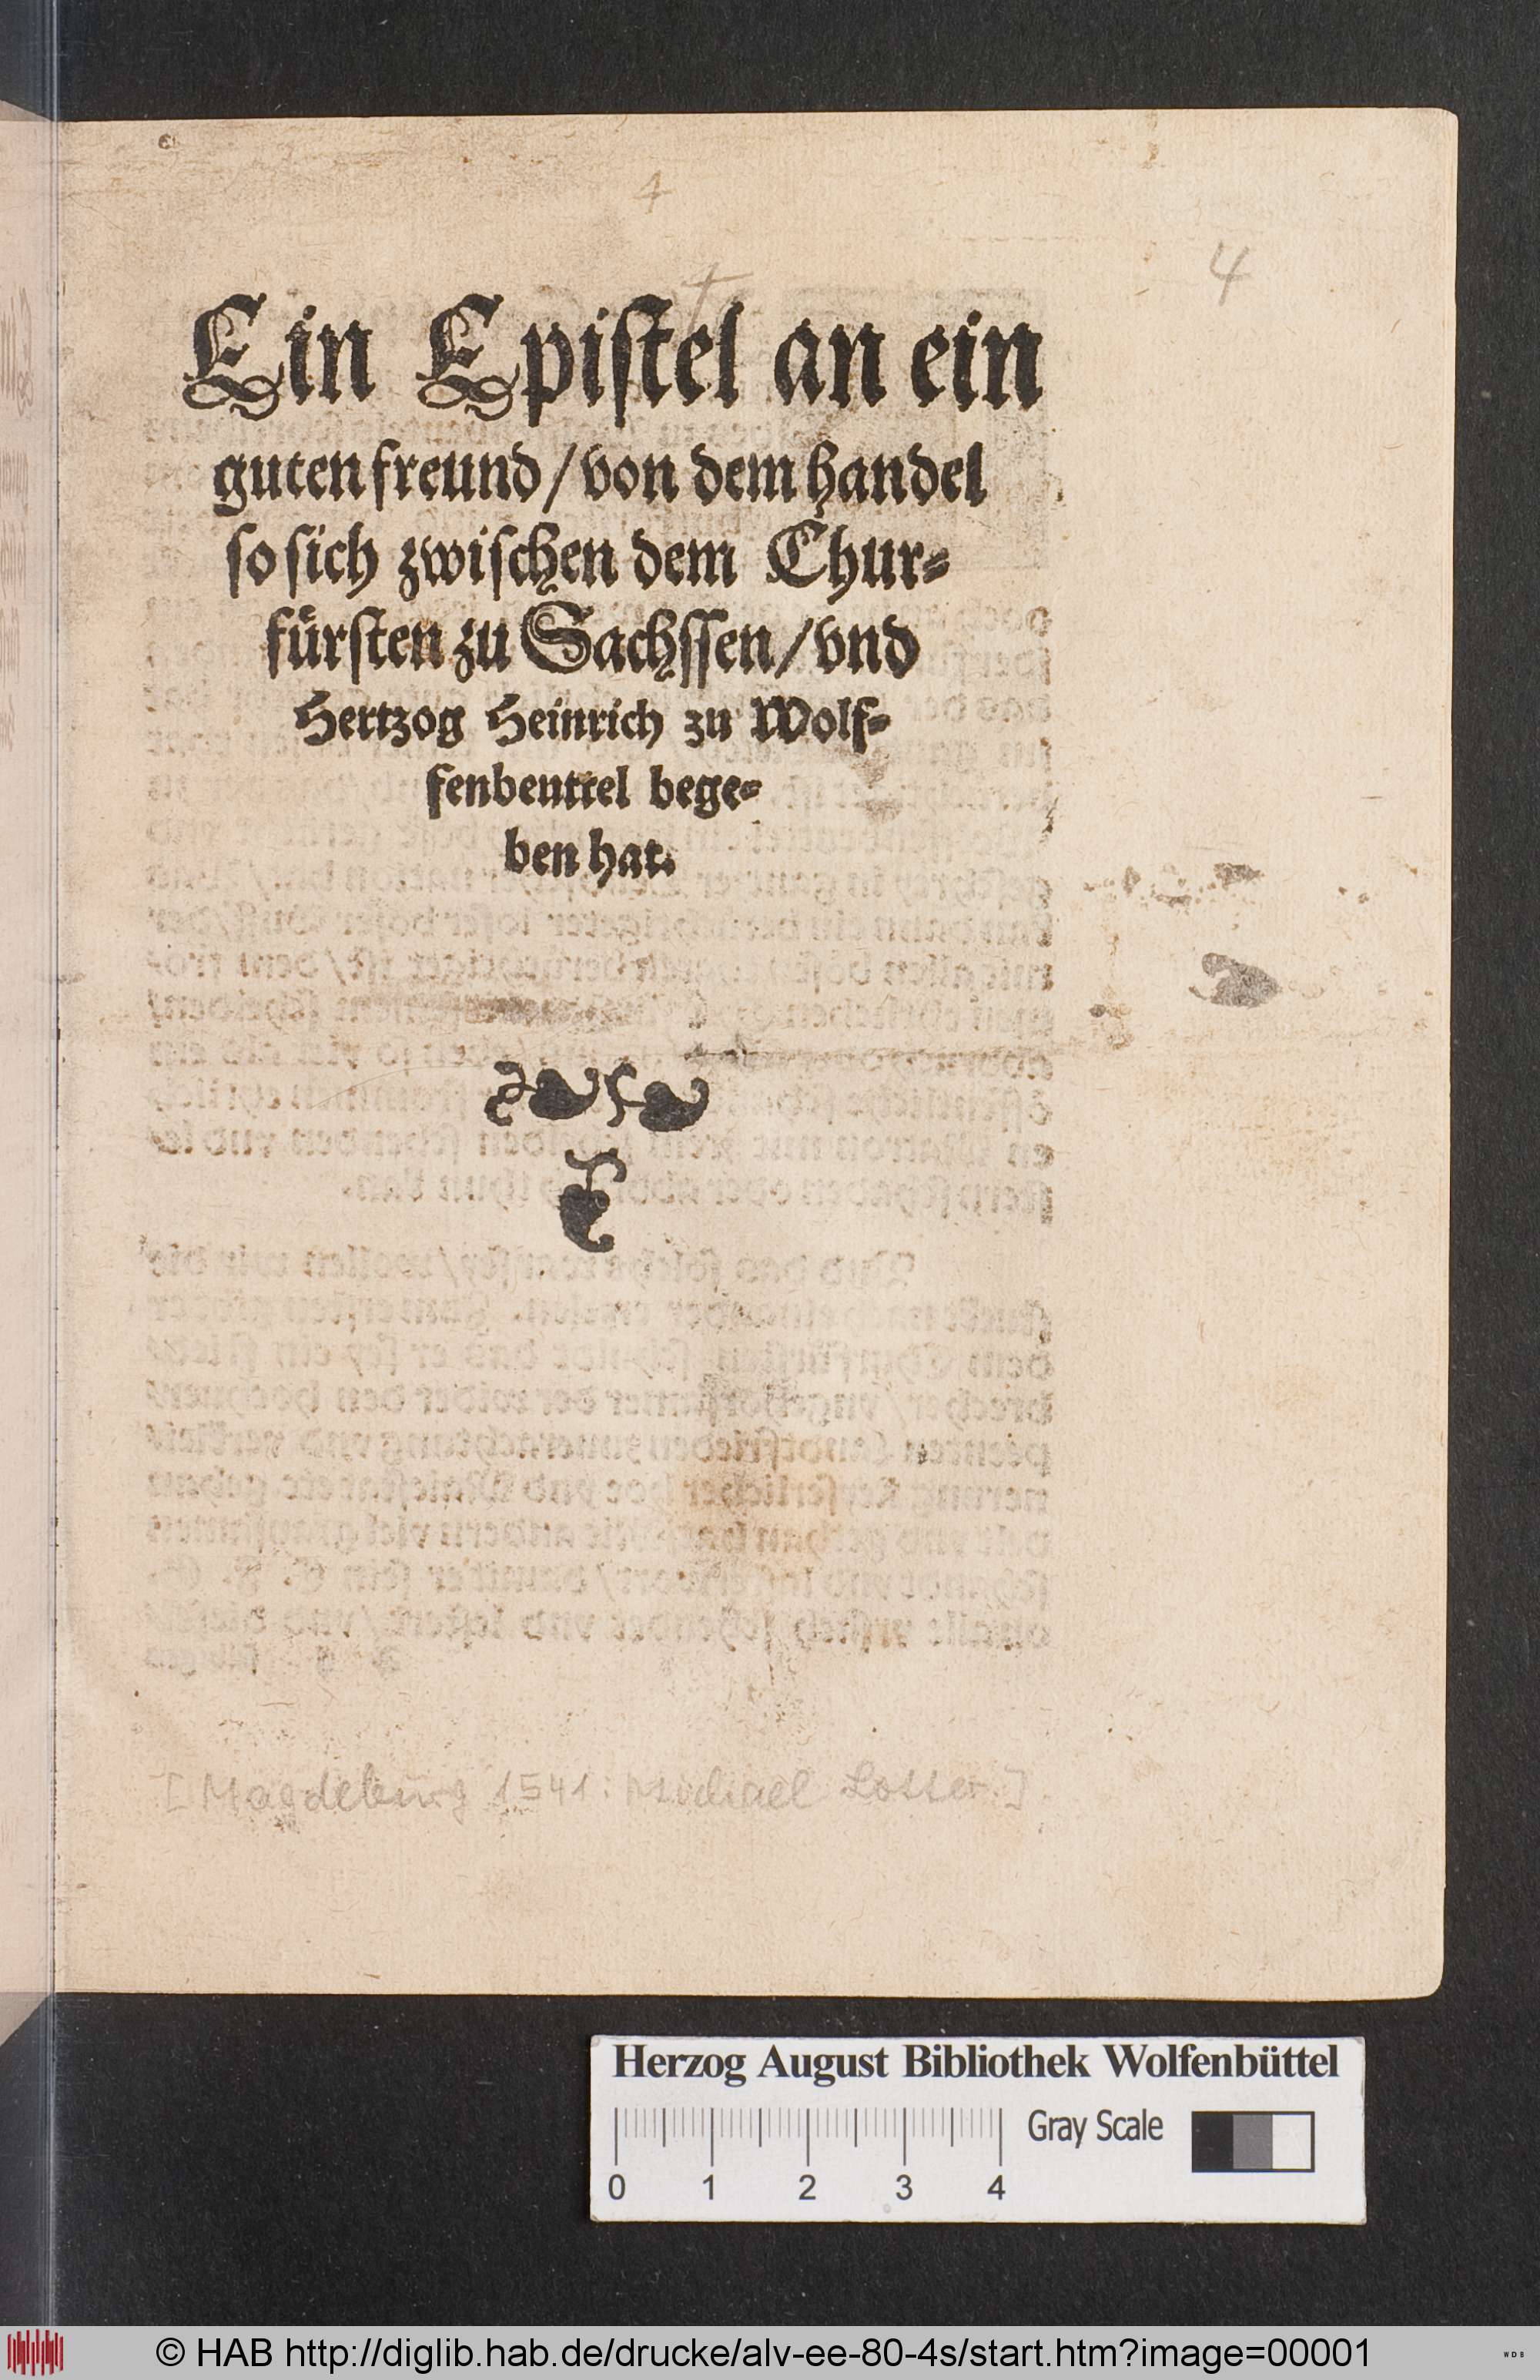 4
4
Ein Epistel an ein
guten freund / von dem handel
so sich zwischen dem Chur-
fürsten zu Sachssen / vnd
Hertzog Heinrich zu Wolf-
fenbeuttel bege-
ben hat.
[Magdeburg 1541: Michael Lotter.]
Herzog August Bibliothek Wolfenbüttel
Gray Scale
0 1 2 3 4
© HAB http://diglib.hab.de/drucke/alv-ee-80-4s/start.htm?image=00001
WDB